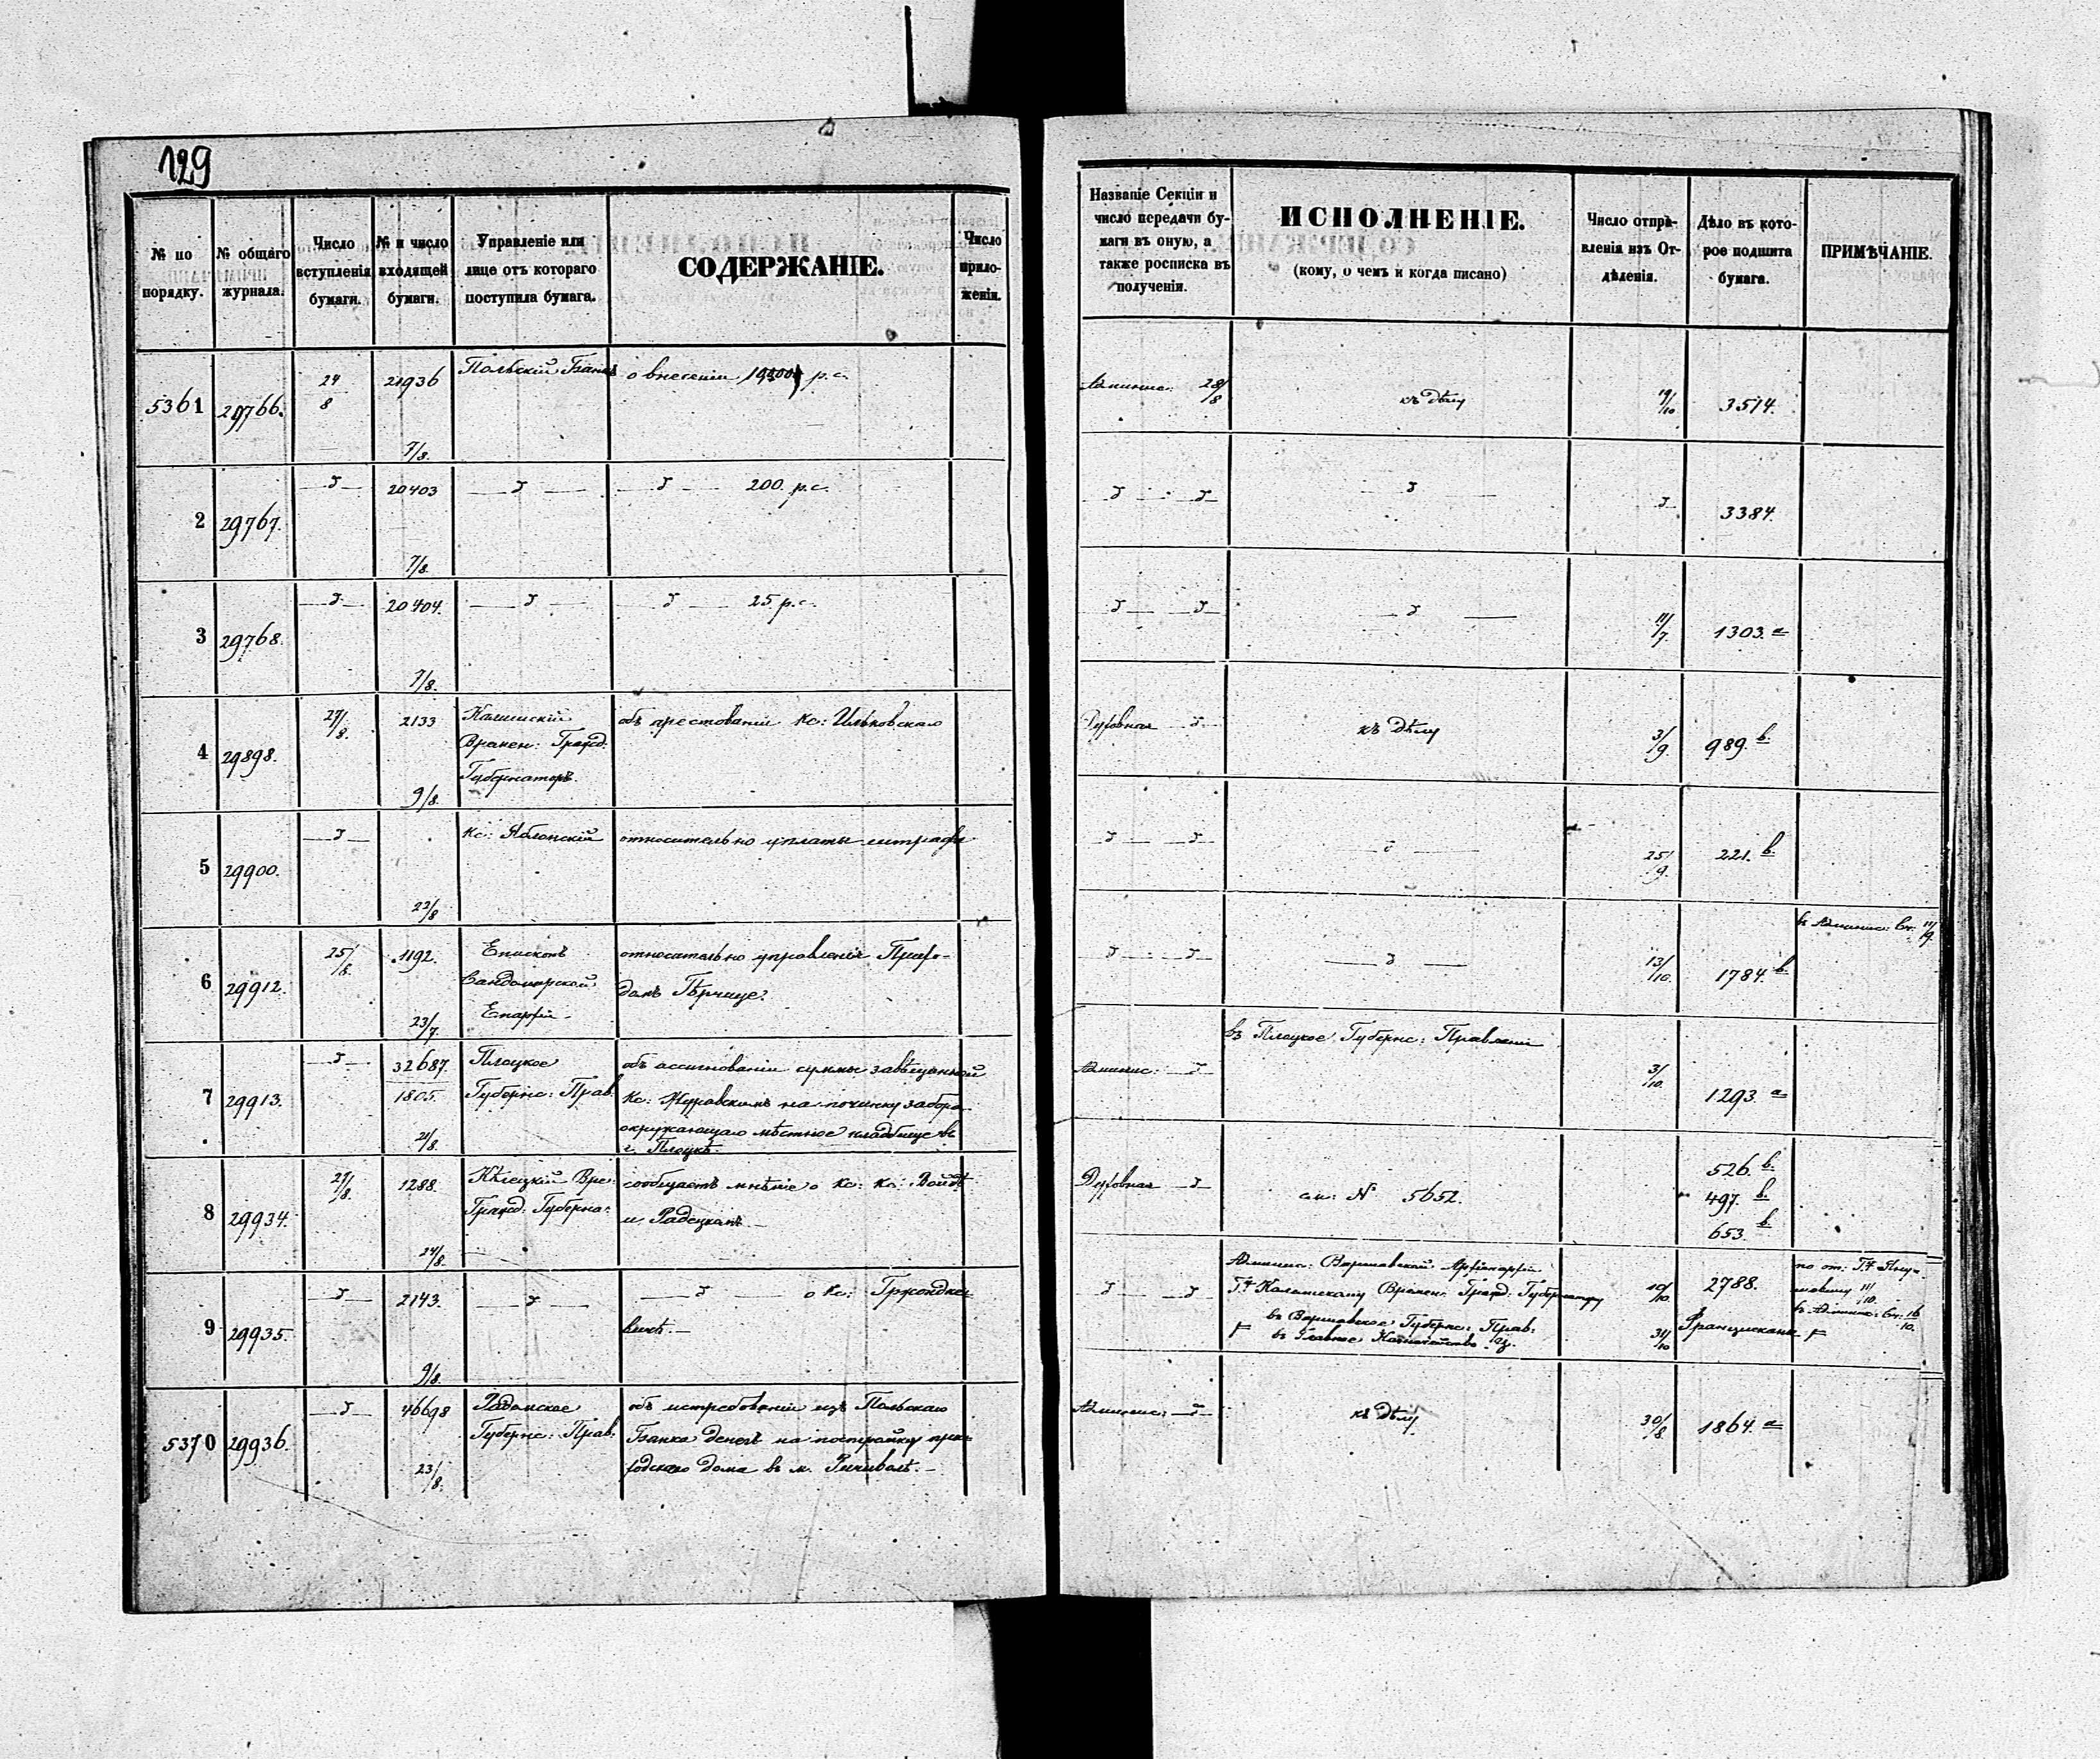 129
№ по порядку.
№ общаго журнала.
Число вступленія бумаги.
№ и число входящей бумаги.
Управленіе или лице отъ котораго поступила бумага.
СОДЕРЖАНІЕ.
Число приложенія.
Названіе Секціи и число передачи бумаги въ оную, а также росписка въ полученіи.
ИСПОЛНЕНІЕ.
(кому, о чемъ и когда писано)
Число отправленія изъ Отдѣленія.
Дѣло въ которое подшита бумага.
ПРИМѢЧАНІЕ.
5361 29766. 24/8 21936 7/8. Польскій Банкъ о внесеніи р.с. 28/8 къ дѣлу 19/10 3514.
2 29767. 20403 7/8. 200. р.с. 3384.
3 29768. 20404. 7/8. 25. р.с. 11/7 1303. а
4 29898. 27/8. 2133 9/8. Калишскій
Времен: Гражд:
Губернаторъ.
объ арестованіи Кс: Ильковскаго
Духовная къ дѣлу 3/9. 989. в.
5 29900. 22/8 Кс: Яблонскій относительно уплаты штрафа 25/9. 221. в.
6 29912. 25/8. 1192. 23/7. Епископъ
Сандомирской
Епархіи.
относительно управленія Прихо-
домъ
13/10. 1784. в.
въ Админис: Ст: 11/9.
7 29913. 32687. 1805. 21/8. Плоцкое
Губернс: Прав.
объ ассигнованіи суммы завѣщанной
Кс: Журавскимъ на починку забора
окружающаго мѣстное кладбище въ
г. Плоцкѣ.
Админис:
въ Плоцкое Губернс: Правленіе
3/10. 1293. а
8 29934. 27/8. 1288. 24/8. Кѣлецкій Вре:
Гражд: Губерна:
сообщаетъ мнѣніе о Кс: Кс: Войдѣ
и Радецкомъ
Духовная см: № 5652. 526. в.
497. в.
653. в.
9 29935. 2143. 9/8. о Кс:
Админис: Варшавской Архіепархіи
Г. Калишскому Времен: Гражд: Губернатору 10/10. 2788.
въ Варшавское Губернс: Прав:
въ Главное Казначейство 31/10 Францискане
въ Админис: Ст: 16/10.
5370 29936. 46698 23/8. Радомское
Губернс: Прав:
объ истребованіи изъ Польскаго
Банка денегъ на постройку при-
ходскаго дома въ м. Ричиволѣ.
Админис: къ дѣлу 30/8. 1864. а